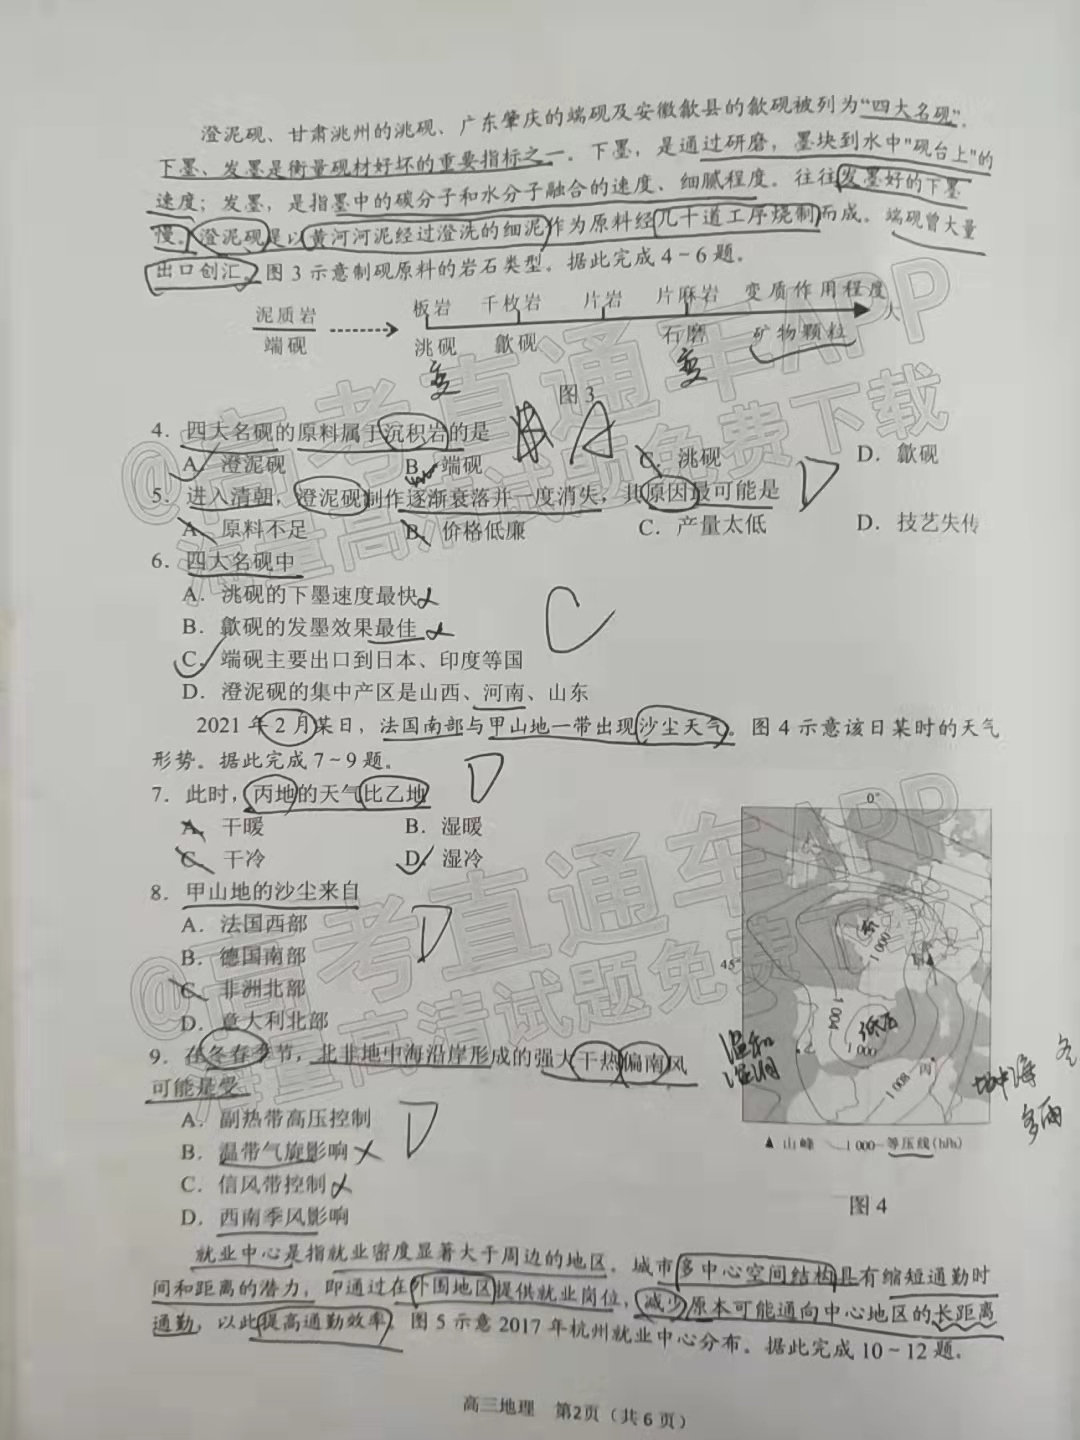 澄泥砚、甘肃洮州的洮砚、广东肇庆的端砚及安徽歙县的歙砚被列为“四大名砚”。
下墨、发墨是衡量砚材好坏的重要指标之一。下墨，是通过研磨，墨块到水中"砚台上"的
速度；发墨，是指墨中的碳分子和水分子融合的速度、细腻程度。往往发墨好的下墨
慢。澄泥砚是以黄河河泥经过澄洗的细泥作为原料经几十道工序烧制而成。端砚曾大量
出口创汇。图3示意制砚原料的岩石类型。据此完成4~6题。
泥质岩 板岩 千枚岩 片岩 片麻岩 变质作用程度 大
端砚 洮砚 歙砚 石磨 矿物颗粒
变 变
图3
4．四大名砚的原料属于沉积岩的是 A
A．澄泥砚 B．端砚 C．洮砚 D．歙砚
5．进入清朝，澄泥砚制作逐渐衰落并一度消失，其原因最可能是 D
A．原料不足 B．价格低廉 C．产量太低 D．技艺失传
6．四大名砚中
A．洮砚的下墨速度最快
B．歙砚的发墨效果最佳
C
C．端砚主要出口到日本、印度等国
D．澄泥砚的集中产区是山西、河南、山东
2021年2月某日，法国南部与甲山地一带出现沙尘天气。图4示意该日某时的天气
形势。据此完成7~9题。
7．此时，丙地的天气比乙地 D
A．干暖 B．湿暖
C．干冷 D．湿冷
8．甲山地的沙尘来自
A．法国西部
D
B．德国南部
C．非洲北部
D．意大利北部
9．在冬春季节，北非地中海沿岸形成的强大干热偏南风
可能是受
A．副热带高压控制
D
B．温带气旋影响
C．信风带控制
D．西南季风影响
0°
45°
1 000
1 004
低压
1 000
1 008
丙
乙
温和
湿润
地中海 冬
多雨
▲ 山峰 1 000 等压线(hPa)
图4
就业中心是指就业密度显著大于周边的地区。城市多中心空间结构具有缩短通勤时
间和距离的潜力，即通过在外围地区提供就业岗位，减少原本可能通向中心地区的长距离
通勤，以此提高通勤效率。图5示意2017年杭州就业中心分布。据此完成10~12题。
高三地理 第2页（共6页）
@高考直通车APP
海量高清试题免费下载
@高考直通车APP
海量高清试题免费